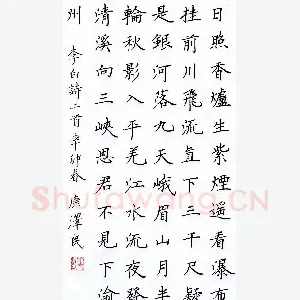 日照香爐生紫煙遥看瀑布
挂前川飛流直下三千尺疑
是銀河落九天峨眉山月半
輪秋影入平羌江水流夜發
清溪向三峽思君不見下渝
州 李白詩二首辛卯春 庚澤民
Shufawang.CN